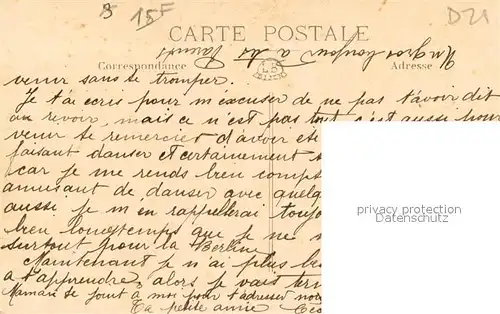 3 15F
D21
CARTE POSTALE
Correspondance
Adresse
Un gros bonjour à tes Parents
venir sans se tromper.
Je t'ai écris pour m'excuser de ne pas t'avoir dit
au revoir, mais ce n'est pas tout c'est aussi pour
venir te remercier d'avoir été
faisant danser et certainement
car je me rends bien
amusant de danser avec
aussi je m'en rappellerai
bien longtemps que je ne
surtout pour la Berline
Maintenant je n'ai plus
a t'apprendre, alors je vais
Maman se joint a moi pour t'adresser
Ta petite amie
privacy protection
Datenschutz